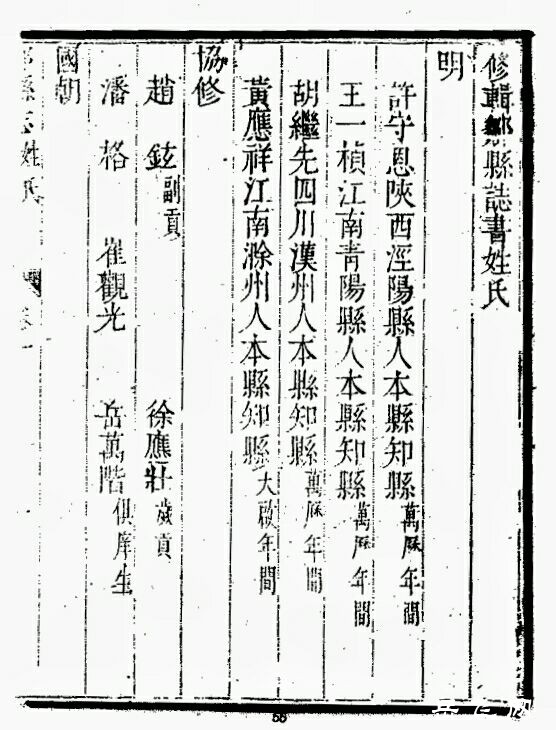 修輯鄒縣誌書姓氏
明
許守恩陝西涇陽縣人本縣知縣萬曆年間
王一楨江南青陽縣人本縣知縣萬曆年間
胡繼先四川漢州人本縣知縣萬曆年間
黃應祥江南滁州人本縣知縣大啟年間
協修
趙鉉副貢 徐應壯歲貢
潘格 崔觀光 岳萬階俱庠生
國朝
縣志姓氏
55